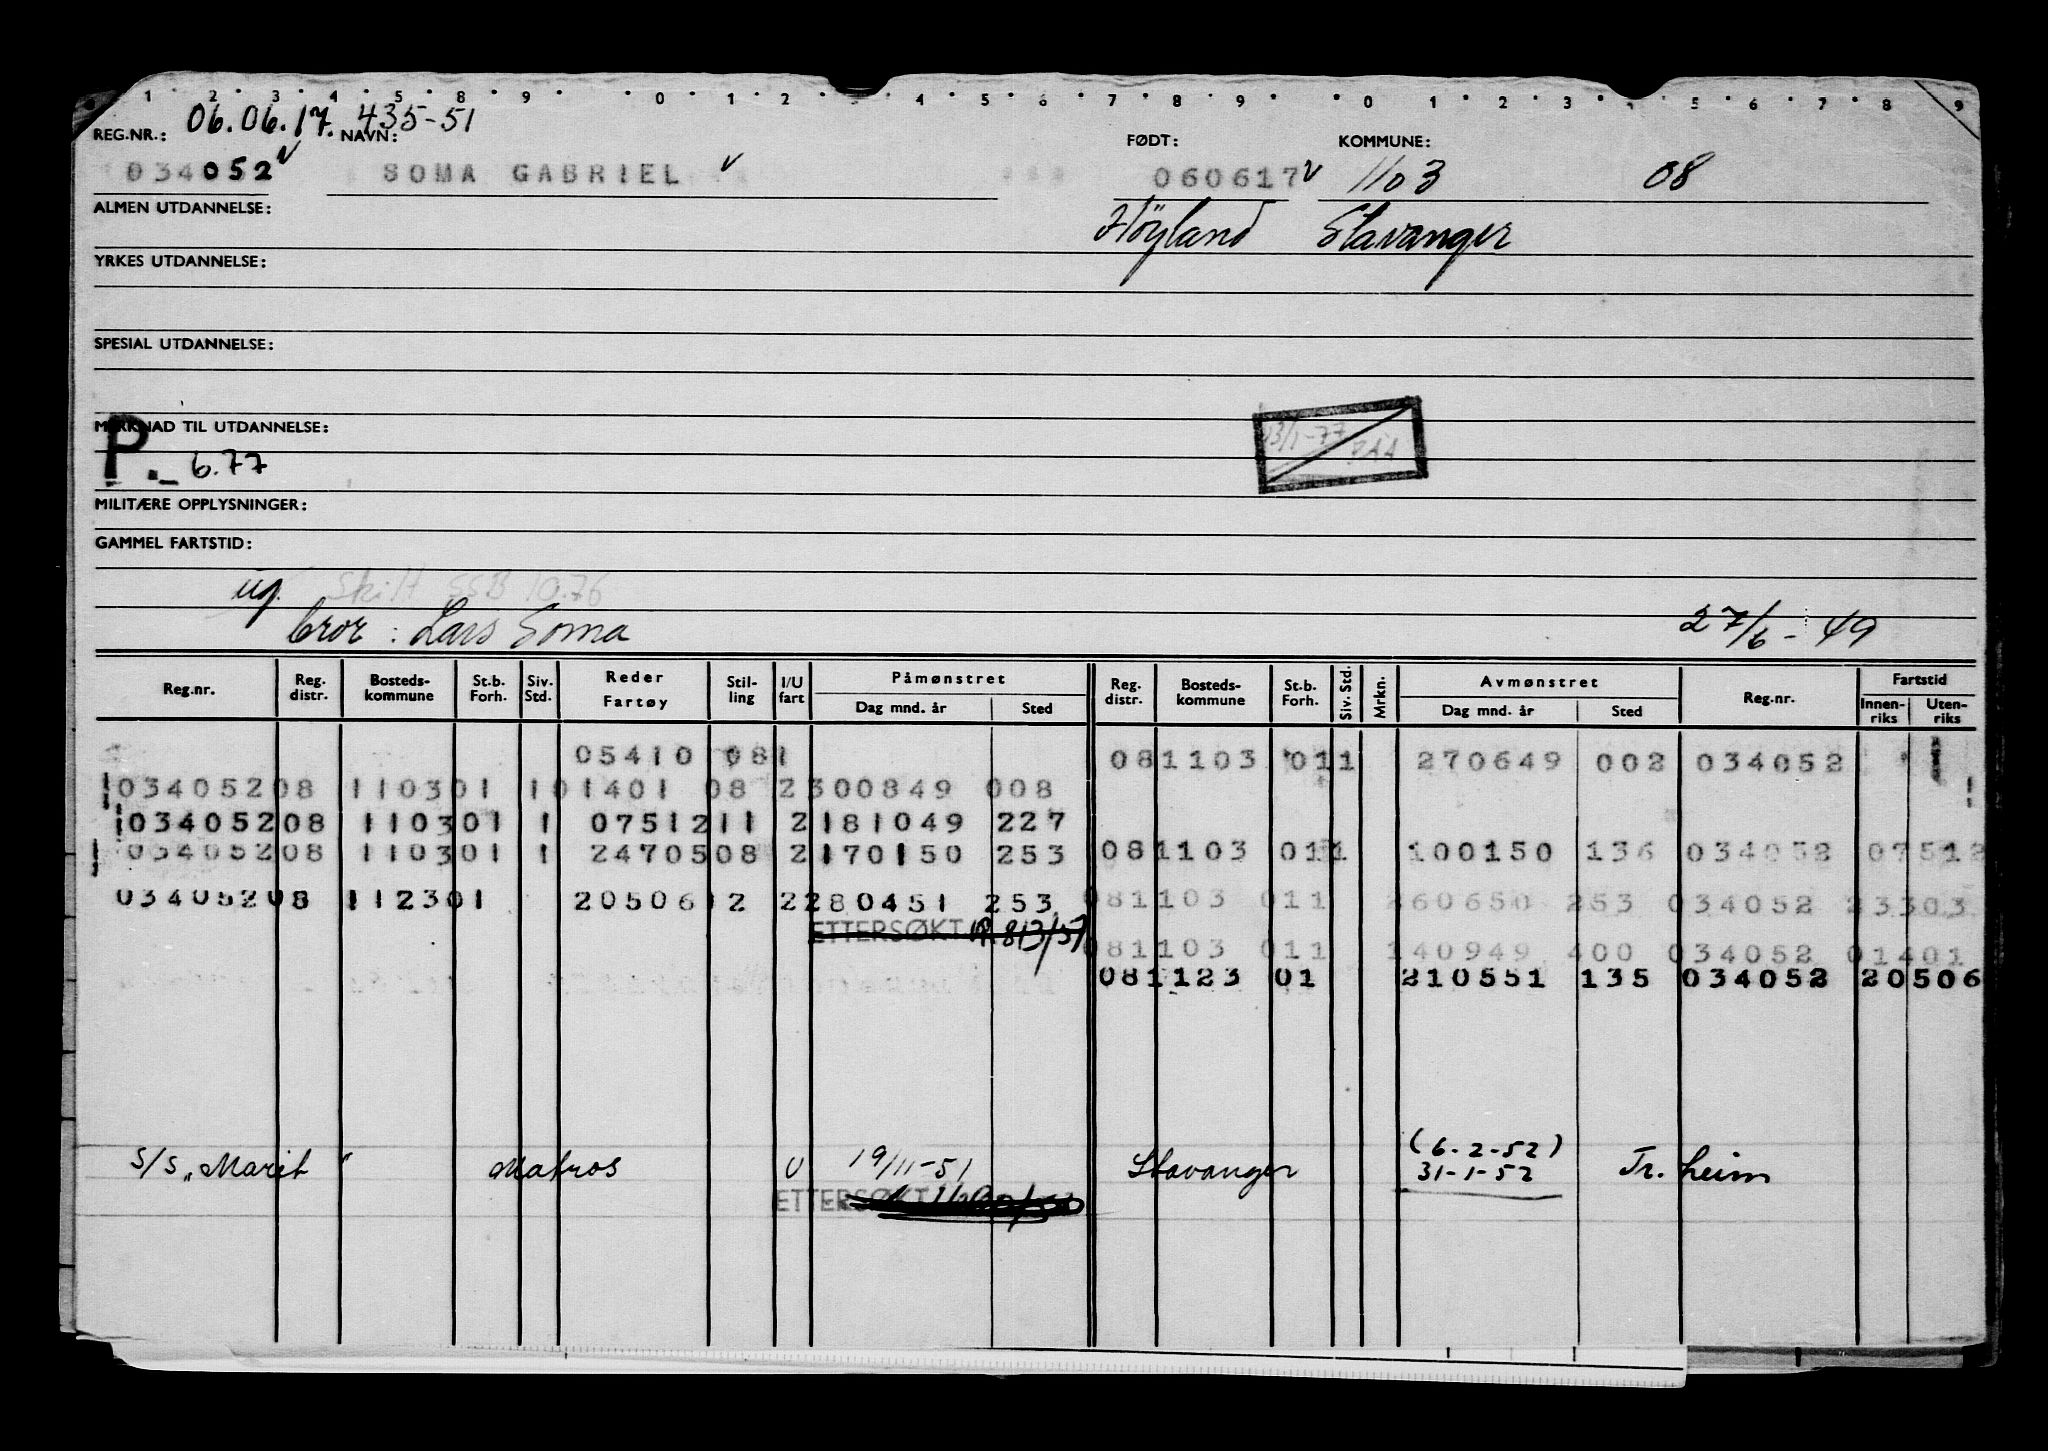 1 2 3 4 5 8 9 0 1 2 3 4 5 6 7 8 9 0 1 2 3 4 5 6 7 8 9
06.06.17. 435-51
REG.NR.: NAVN: FØDT: KOMMUNE:
034052 SOMA GABRIEL 060617 1103 08
ALMEN UTDANNELSE: Höyland Stavanger
YRKES UTDANNELSE:
SPESIAL UTDANNELSE:
MERKNAD TIL UTDANNELSE: 13/1-77
P._ 6.77
MILITÆRE OPPLYSNINGER:
GAMMEL FARTSTID:
ug. Skilt SSB 10.76
bror: Lars Soma 27/6-49
Reg.nr. Reg. distr. Bosteds- kommune St.b. Forh. Siv. Std. Reder Fartøy Stil- ling I/U fart Påmønstret Dag mnd. år Sted Reg. distr. Bosteds- kommune St.b. Forh. Siv. Std. Mrkn. Avmønstret Dag mnd. år Sted Reg.nr. Fartstid Innen- riks Uten- riks
05410 081 081103 011 270649 002 034052 1
03405208 110301 101401 08 2300849 008
03405208 110301 1 0751211 2181049 227
03405208 110301 1 2470508 2170150 253 081103 011 100150 136 034052 07512
03405208 112301 2050612 2280451 253 081103 011 260650 253 034052 23303
ETTERSØKT 8/3/57
081103 011 140949 400 034052 01401
081123 01 210551 135 034052 20506
S/S "Marit" Matros U 19/11-51 Stavanger (6-2-52) 31-1-52 Tr.heim
ETTERSØKT